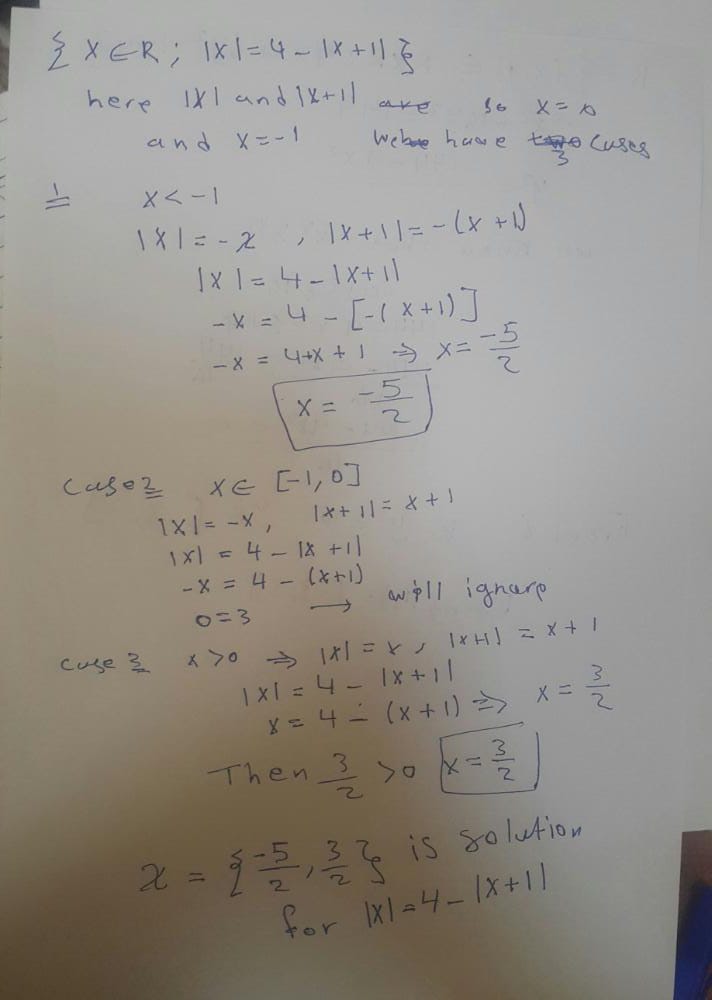 { X ∈ R ; |X| = 4 - |X+1| }
here |X| and |X+1| are so x = 0
and x = -1 We have two 3 cases
1 x < -1
|X| = -x , |X+1| = -(x+1)
|X| = 4 - |X+1|
-x = 4 - [-(x+1)]
-x = 4+x+1 ⇒ x = -5/2
x = -5/2
Case 2 x ∈ [-1, 0]
|X| = -x, |x+1| = x+1
|x| = 4 - |x+1|
-x = 4 - (x+1)
0 = 3 → will ignore
Case 3 x > 0 ⇒ |x| = x, |x+1| = x+1
|X| = 4 - |x+1|
x = 4 - (x+1) ⇒ x = 3/2
Then 3/2 > 0 x = 3/2
x = { -5/2 , 3/2 } is solution
for |X| = 4 - |X+1|